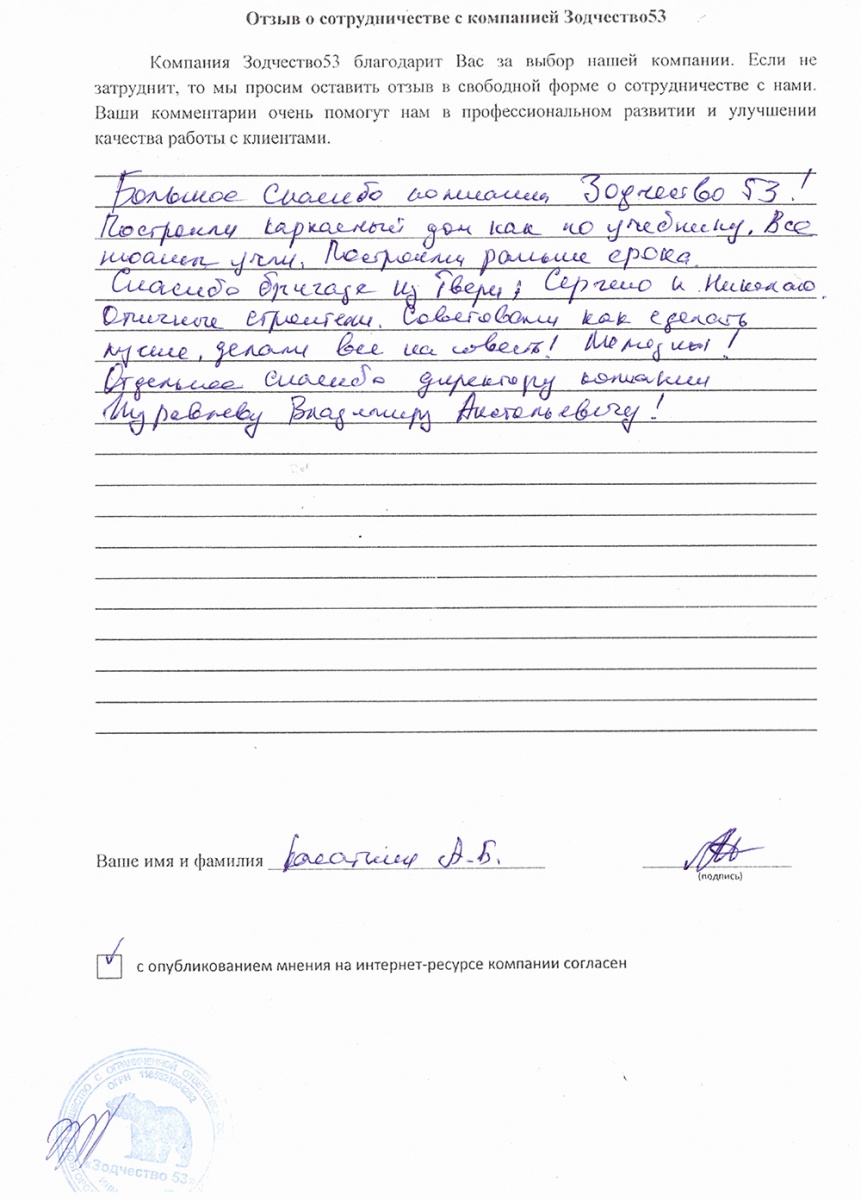 Отзыв о сотрудничестве с компанией Зодчество53
Компания Зодчество53 благодарит Вас за выбор нашей компании. Если не
затруднит, то мы просим оставить отзыв в свободной форме о сотрудничестве с нами.
Ваши комментарии очень помогут нам в профессиональном развитии и улучшении
качества работы с клиентами.
Большое спасибо компания Зодчество 53!
Построили каркасный дом как по учебнику. Все
нюансы учли. Построили раньше срока.
Спасибо бригаде из Твери; Сергею и Николаю.
Отличные строители. Советовали как сделать
лучше, делали все на совесть! Молодцы!
Отдельное спасибо директору компании
Журавлеву Владимиру Анатольевичу!
Ваше имя и фамилия А.Б.
(подпись)
с опубликованием мнения на интернет-ресурсе компании согласен
ОБЩЕСТВО С ОГРАНИЧЕННОЙ ОТВЕТСТВЕ
ОГРН
«Зодчество 53»